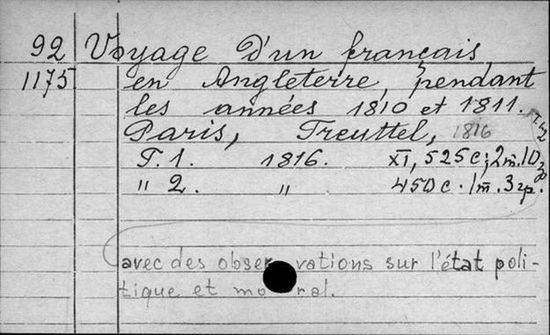 92 Voyage D'un français,
1175 en Angleterre, pendant
les années 1810 et 1811.
Paris, Treuttel, 1816
T. 1. 1816. XI, 525 c; 2 m. 10
" 2. " 450 c. 1 m. 3 гр.
avec des observations sur l'état poli-
tique et moral.